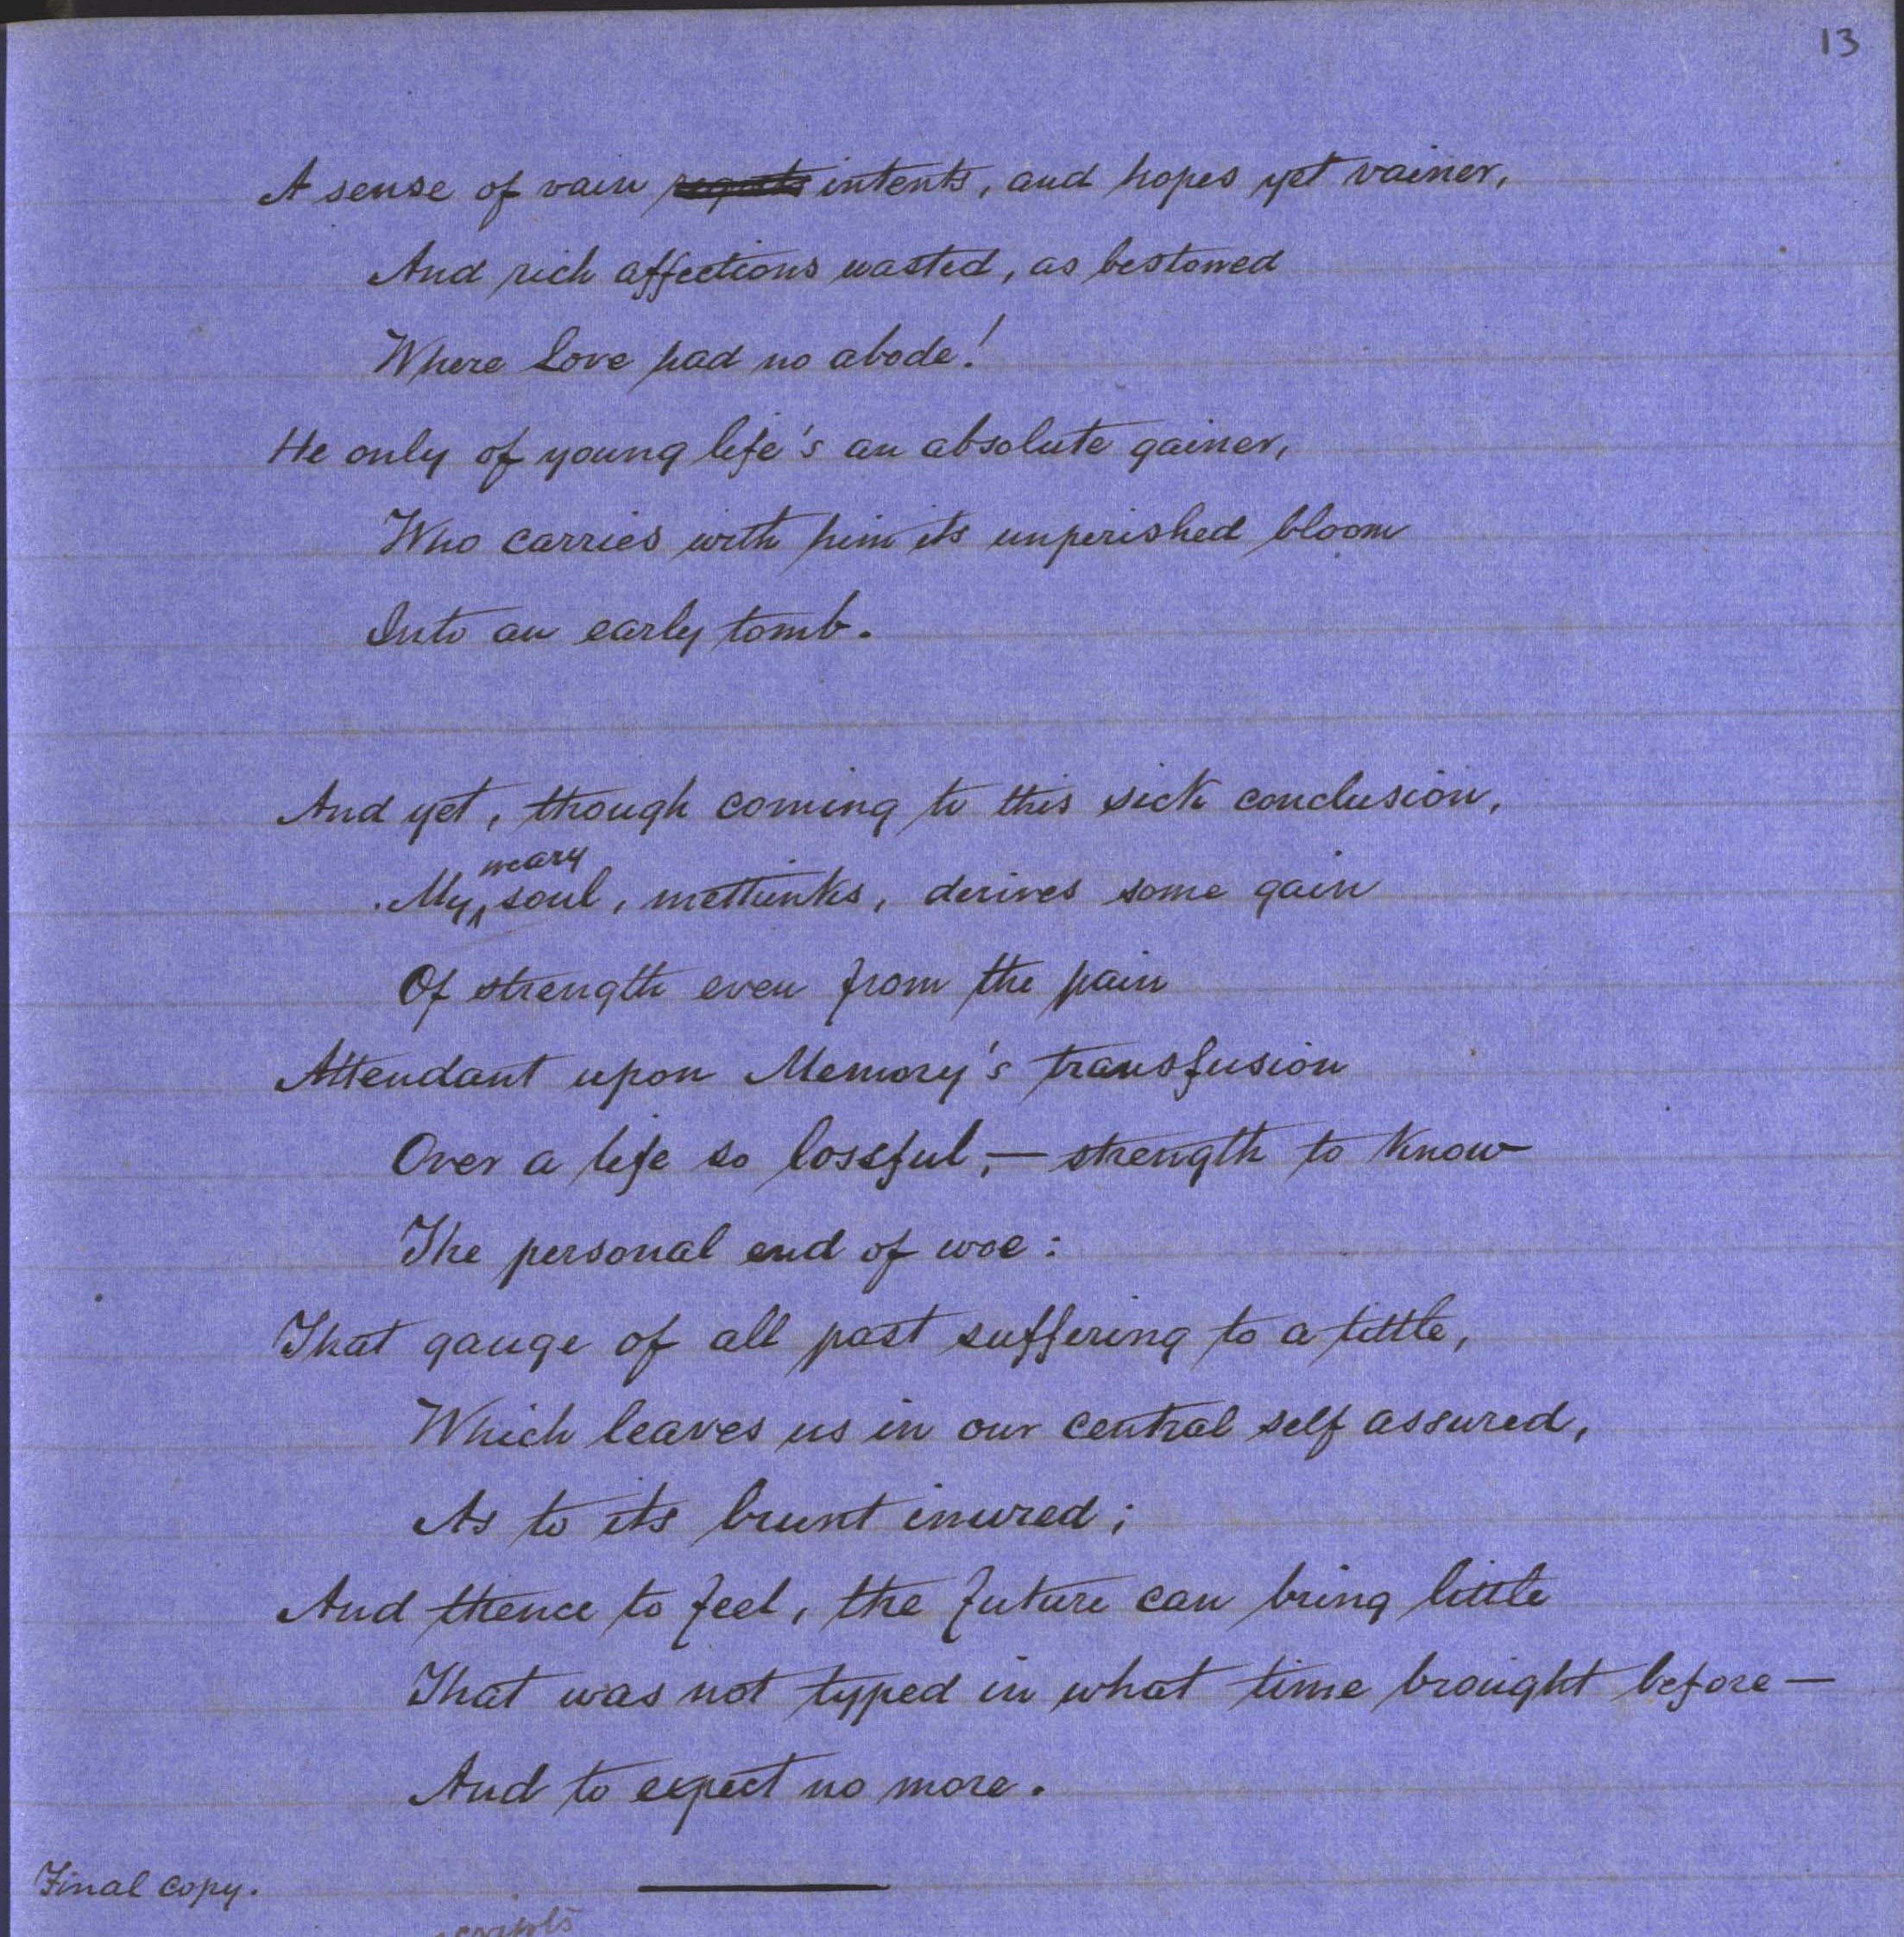 13
A sense of vain intents, and hopes yet vainer,
And rich affections wasted, as bestowed
Where Love had no abode!
He only of young life's an absolute gainer,
Who carries with him its unperished bloom
Into an early tomb.
And yet, though coming to this sick conclusion,
My weary soul, methinks, derives some gain
Of strength even from the pain
Attendant upon Memory's transfusion
Over a life so lossful,—strength to know
The personal end of woe:
That gauge of all past suffering to a tittle,
Which leaves us in our central self assured,
As to its brunt inured;
And thence to feel, the future can bring little
That was not typed in what time brought before—
And to expect no more.
Final copy.